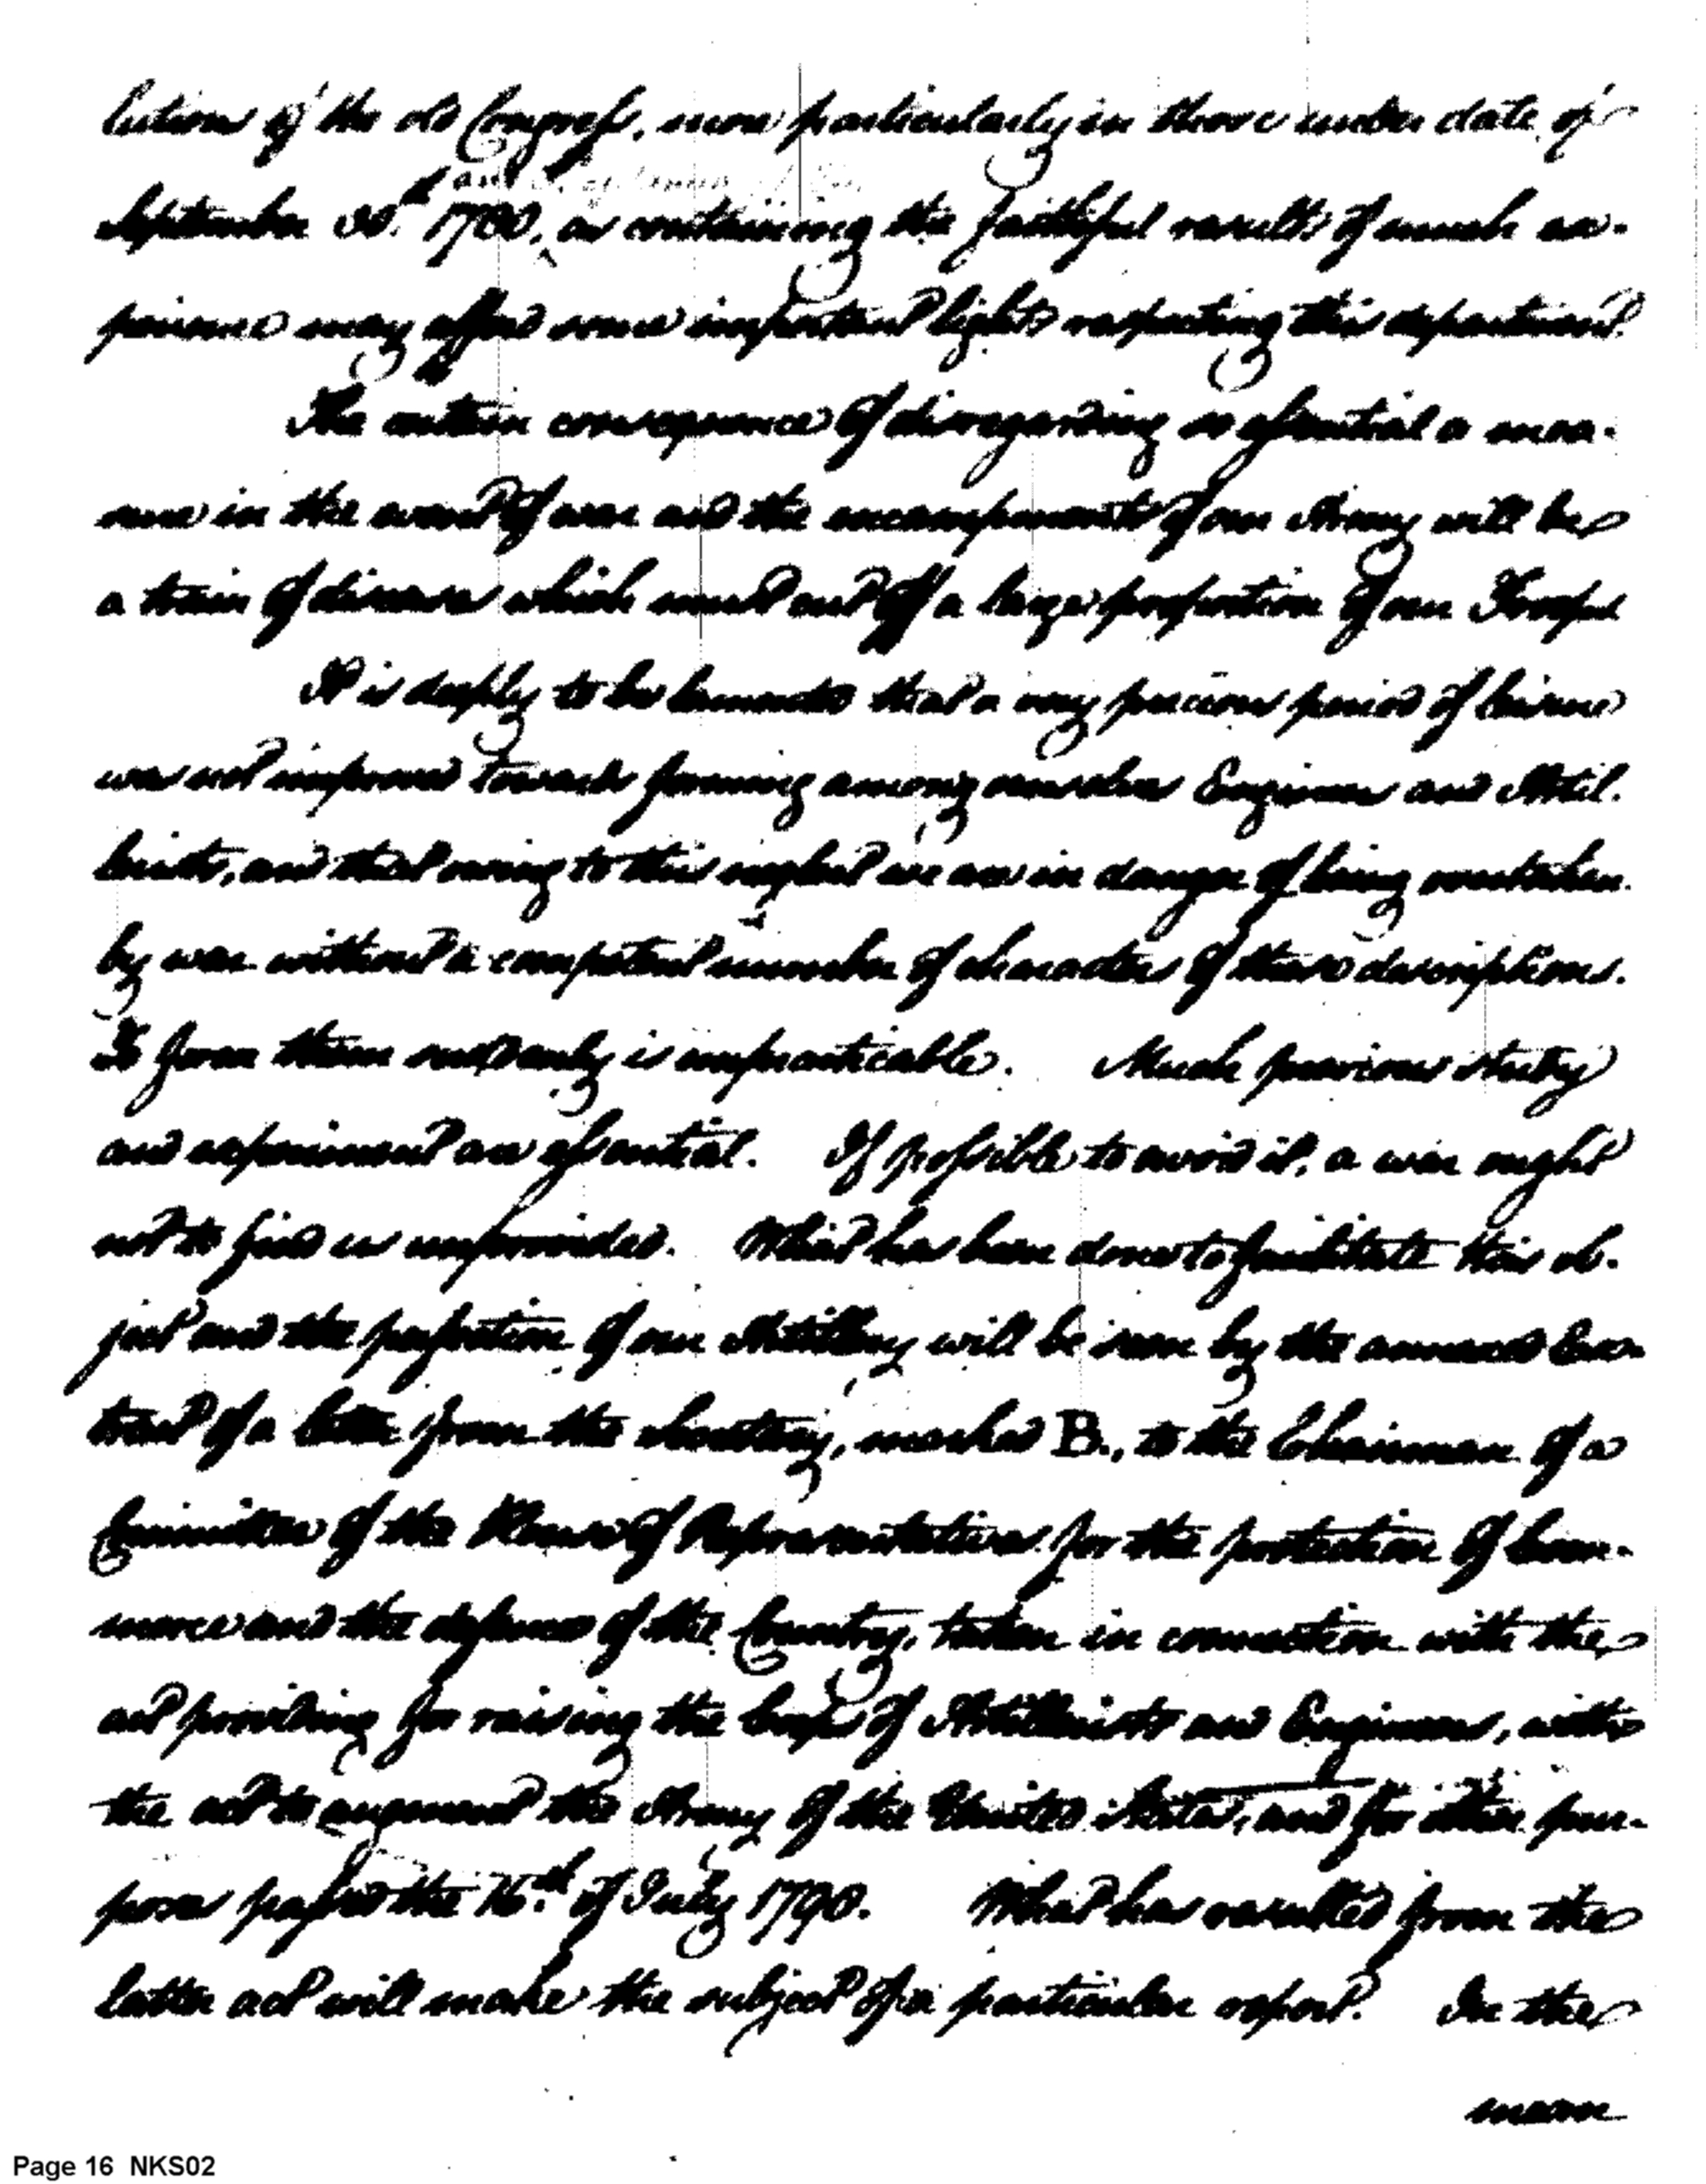 lution of the old Congress, more particularly in those under date of
September 30th. 1780, as containing the faithful results of much ex-
perience may afford some important lights respecting this department.
The certain consequence of disregarding so essential a mea-
sure in the event of war and the encampment of our Army will be
a train of diseases which must cut off a large proportion of our Troops
It is deeply to be lamented that a very precious period of leisure
was not improved towards forming among ourselves Engineers and Artil-
lerists, and that owing to this neglect we are in danger of being overtaken
by war without a competent number of characters of these descriptions.
To form them suddenly is impracticable. Much previous study
and experiment are essential. If possible to avoid it, a war ought
not to find us unprovided. What has been done to facilitate this ob-
ject and the perfection of our Artillery will be seen by the annexed Ex-
tract of a letter from the Secretary, marked B., to the Chairman of a
Committee of the House of Representatives for the protection of Com-
merce and the defence of the Country, taken in connection with the
act providing for raising the Corps of Artillerists and Engineers, with
the act to augment the Army of the United States, and for other pur-
poses passed the 16th. of July 1798. What has resulted from the
latter act will make the subject of a particular report. In the
mean
Page 16 NKS02